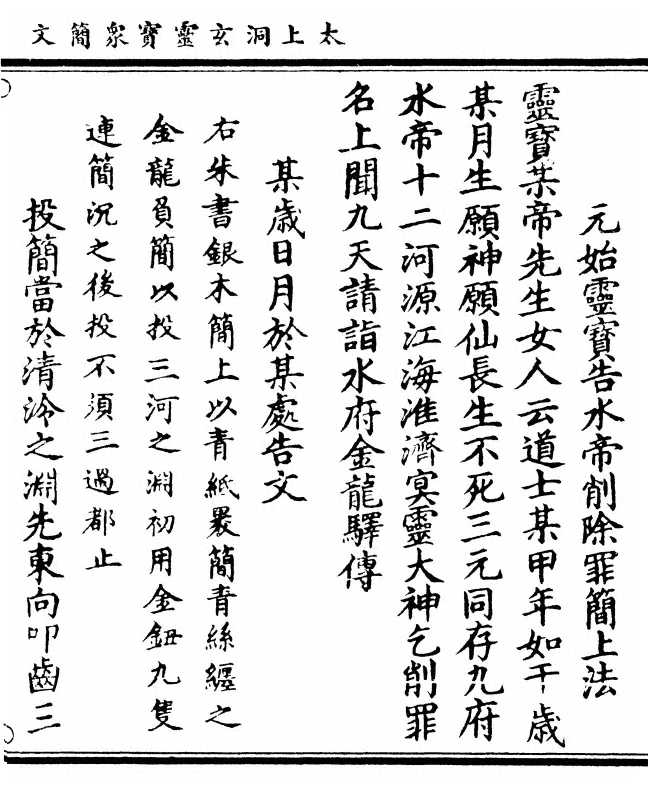 太上洞玄靈寶衆簡文
元始靈寶告水帝削除罪簡上法
靈寶某帝先生女人云道士某甲年如干歲
某月生願神願仙長生不死三元同存九府
水帝十二河源江海淮濟冥靈大神乞削罪
名上聞九天請詣水府金龍驛傳
某歲日月於某處告文
右朱書銀木簡上以青紙裹簡青絲纏之
金龍負簡以投三河之淵初用金鈕九隻
連簡沉之後投不須三過都止
投簡當於清泠之淵先東向叩齒三